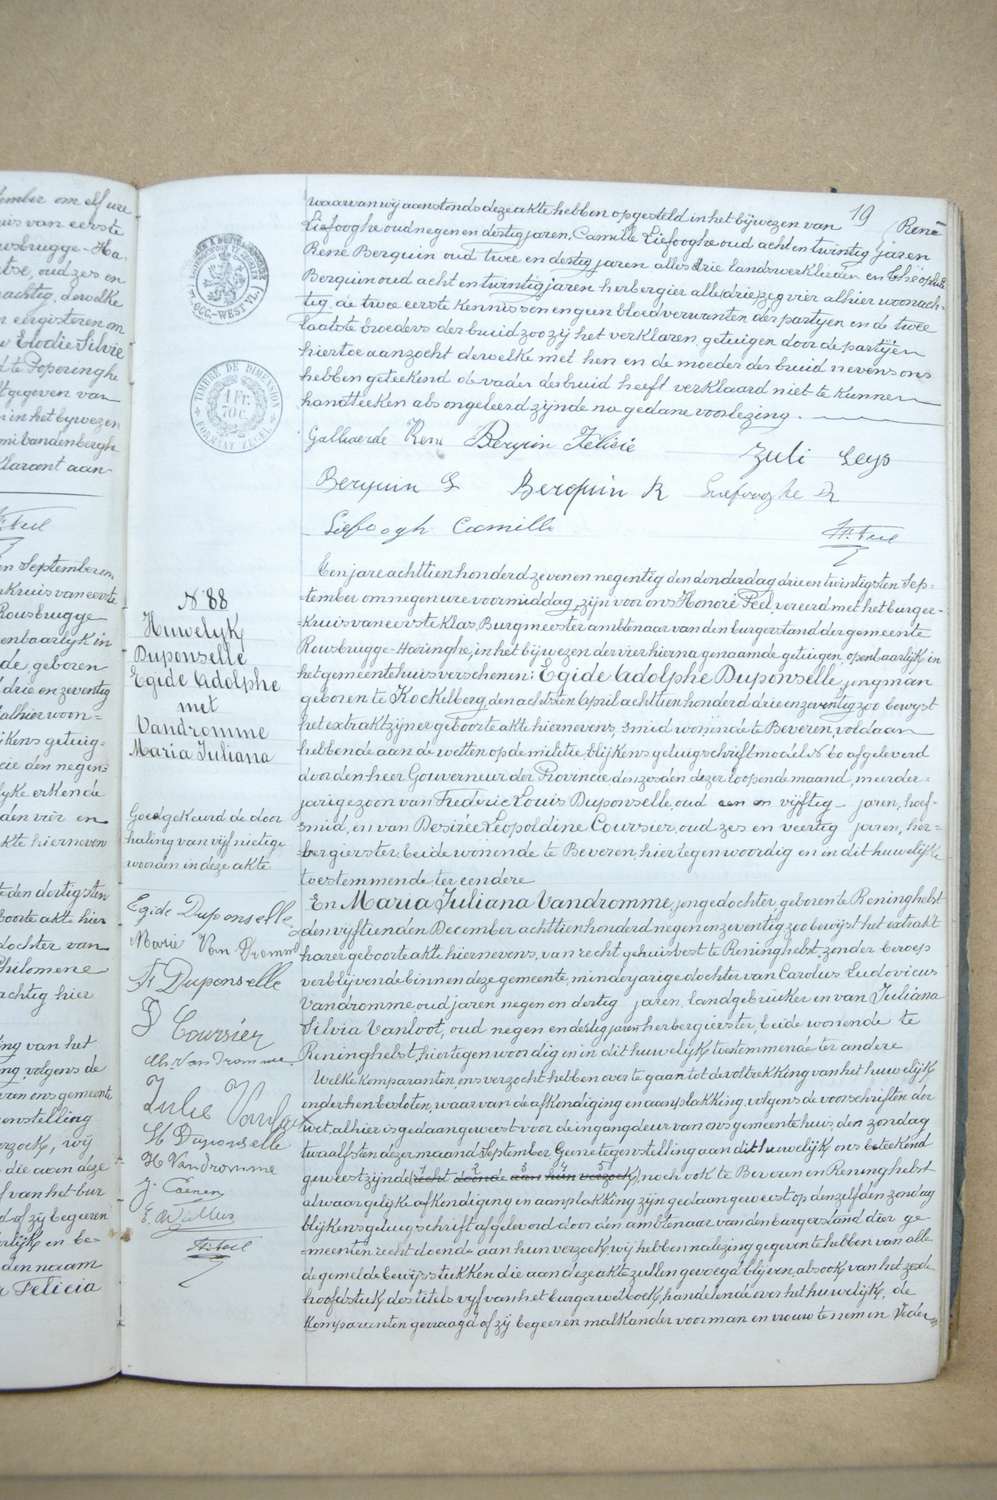 tember om elf ure
uis van eerste
usbrugge-Ha-
tse, oud zes en
achtig, dewelke
n eergisteren om
Elodie Silvie
te Poperinghe
gegeven van
in het bijwezen
mi Vandenbergh
klarant aan-
H. Feel
en September om
kruis van eerste
Rousbrugge
enbaarlijk in
de geboren
drie en zeventig
alhier woon=
ijkens getuig-
cie den negen=
yke erkende
den vier en
akte hierneven
te den dertigsten
boorte akte hier
dochter van
Philomene
achtig hier
ing van het
ng, volgens de
van ons gemeente
enstelling
erzoek, wij
die aan deze
f van het bur
of zij begeeren
erlijk en be-
den naam
Felicia
19
waarvan wij aanstonds deze akte hebben opgesteld in het bijwezen van René
Liefooghe oud negen en dertig jaren, Camille Liefooghe oud acht en twintig jaren
René Berquin oud twee en dertig jaren alle drie landswerklieden en Theophile
Berquin oud acht en twintig jaren herbergier alle (drie) zeg vier alhier woonach-
tig, de twee eerste kennissen en geen bloedverwanten der partyen en de twee
laatste broeders der bruid zoo zij het verklaren, getuigen door de partijen
hiertoe aanzocht dewelke met hen en de moeder der bruid nevens ons
hebben geteekend de vader der bruid heeft verklaard niet te kunnen
handteeken als ongeleerd zijnde na gedane voorlezing.
Gallwerde René Berquin Felicie Zuli Leys
Berquin Berquin R Liefooghe R
Liefoogh Camille H. Feel
TIMBRE DE DIMENSION
1 Fr.
70 c.
N 88
Huwelyk
Duponselle
Egide Adolphe
met
Vandromme
Maria Juliana
Goedgekeurd de door
haling van vijf nietige
woorden in deze akte
Egide Duponselle
Marie Van Dromme
F Duponselle
D Coursier
Ch. Vandromme
Julie Vanloot
H Duponselle
H Vandromme
J. Coenen
H. Feel
Een jare achttien honderd zeven en negentig den donderdag drie en twintigsten Sep=
tember om negen ure voormiddag, zijn voor ons Honoré Feel, vereerd met het burger-
kruis van eerste klas, Burgmeester ambtenaar van den burgerstand der gemeente
Rousbrugge-Haringhe, in het bijwezen der vier hierna genaamde getuigen openbaarlijk in
het gemeentehuis verschenen: Egide Adolphe Duponselle, jongman
geboren te Kockelberg, den achtsten April achttien honderd drie en zeventig zoo bewyst
het extrakt zijner geboorte akte hiernevens, smid wonende te Beveren, voldaan
hebbende aan de wetten op de militie, blijkens getuigschrift model N 60 afgeleverd
door den heer Gouverneur der Provincie den zesden dezer loopende maand, meerder=
jarige zoon van Frederic Louis Duponselle, oud een en vijftig jaren, hoef-
smid, en van Desirée Leopoldine Coursier, oud zes en veertig jaren, her=
bergierster, beide wonende te Beveren, hier tegenwoordig en in dit huwelijk
toestemmende ter eendere
En Maria Juliana Vandromme, jonge dochter geboren te Reninghelst
den vijftienden December achttien honderd negen en zeventig zoo bewijst het extrakt
harer geboorte akte hiernevens, van recht gehuisvest te Reninghelst, zonder beroep
verblijvende binnen deze gemeente, minderjarige dochter van Carolus Ludovicus
Vandromme, oud jaren negen en dertig jaren, landgebruiker en van Juliana
Silvia Vanloot, oud negen en dertig jaren herbergierster, beide wonende te
Reninghelst, hier tegenwoordig en in dit huwelijk toestemmende ter andere
Welke komparanten ons verzocht hebben over te gaan tot de voltrekking van het huwelijk
onder hen besloten, waarvan de afkondiging en aanplakking, volgens de voorschriften der
wet, alhier is gedaan geweest voor de ingangdeur van ons gemeentehuis, den zondag
twaalfsten dezer maand September. Geene tegenstelling aan dit huwelijk ons beteekend
geweest zijnde (recht doende aan hun verzoek) noch ook te Beveren en Reninghelst
alwaar gelyke afkondiging en aanplakking zijn gedaan geweest op denzelfden zondag
blijkens getuigschrift afgeleverd door den ambtenaar van den burgerstand dier ge-
meenten recht doende aan hun verzoek, wij hebben nalezing gegeven te hebben van alle
de gemelde bewijsstukken die aan deze akte zullen gevoegd blijven, als ook van het zesde
hoofdstuk des titels vyf van het burger wetboek, handelende over het huwelijk, de
komparanten gevraagd of zij begeeren malkander voor man en vrouw te nemen. Ieder